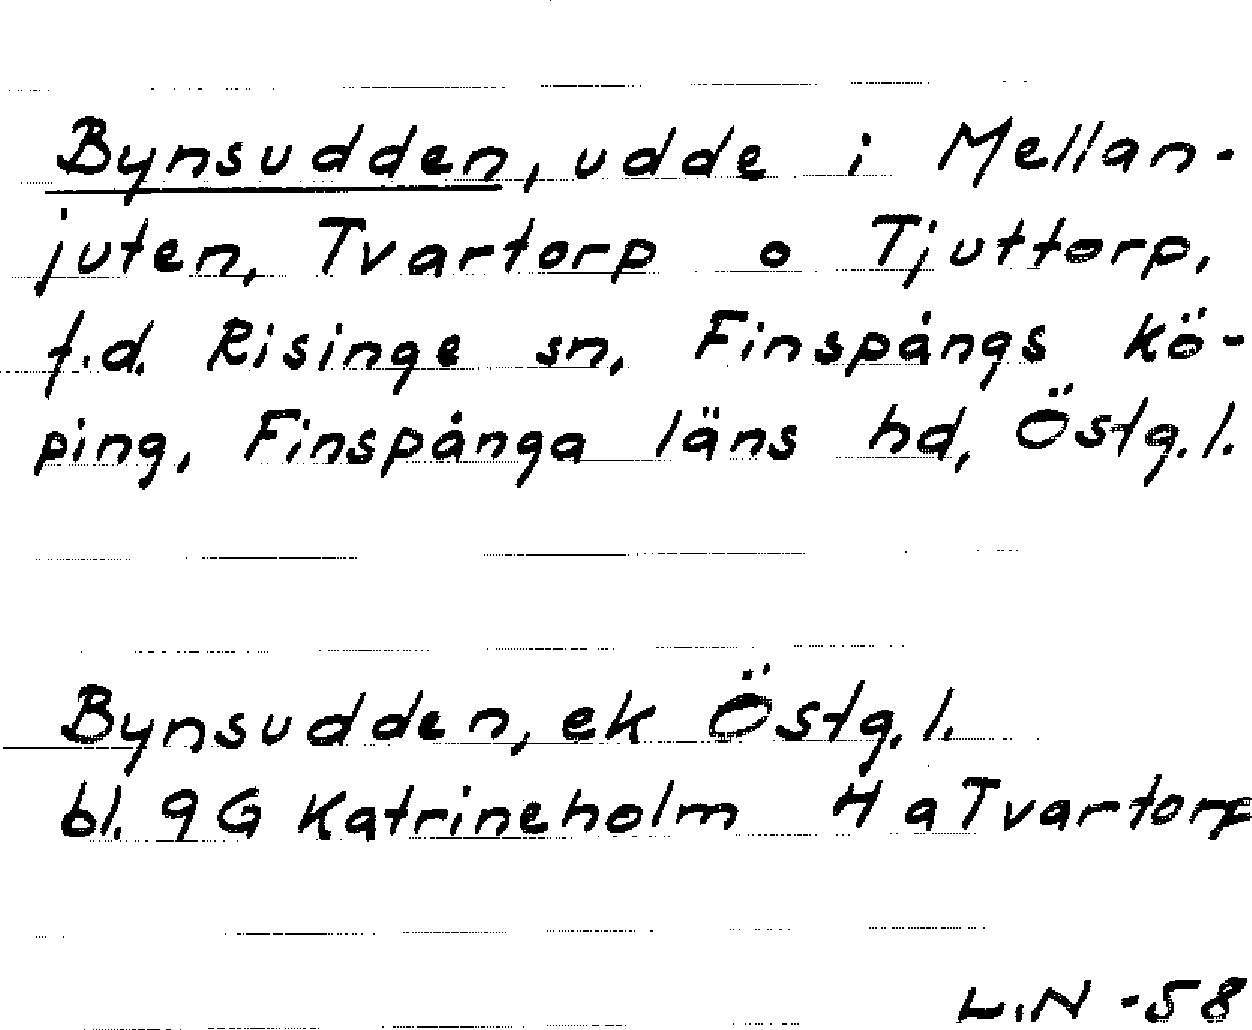 Bynsudden, udde i Mellan-
juten, Tvartorp o Tjuttorp,
f.d. Risinge sn, Finspångs kö-
ping, Finspånga läns hd, Östg.l.
Bynsudden, ek Östg.l.
bl. 9G Katrineholm 4 a Tvartorp
L.N -58